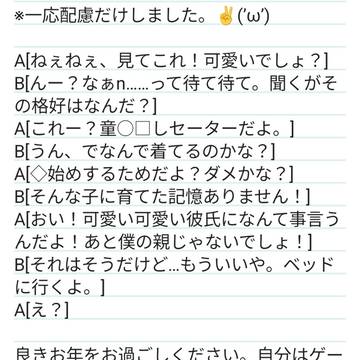 ※一応配慮だけしました。✌️('ω')
A[ねぇねぇ、見てこれ！可愛いでしょ？]
B[んー？なぁn……って待て待て。聞くがそ
の格好はなんだ？]
A[これー？童◯□しセーターだよ。]
B[うん、でなんで着てるのかな？]
A[◇始めするためだよ？ダメかな？]
B[そんな子に育てた記憶ありません！]
A[おい！可愛い可愛い彼氏になんて事言う
んだよ！あと僕の親じゃないでしょ！]
B[それはそうだけど…もういいや。ベッド
に行くよ。]
A[え？]
良きお年をお過ごしください。自分はゲー